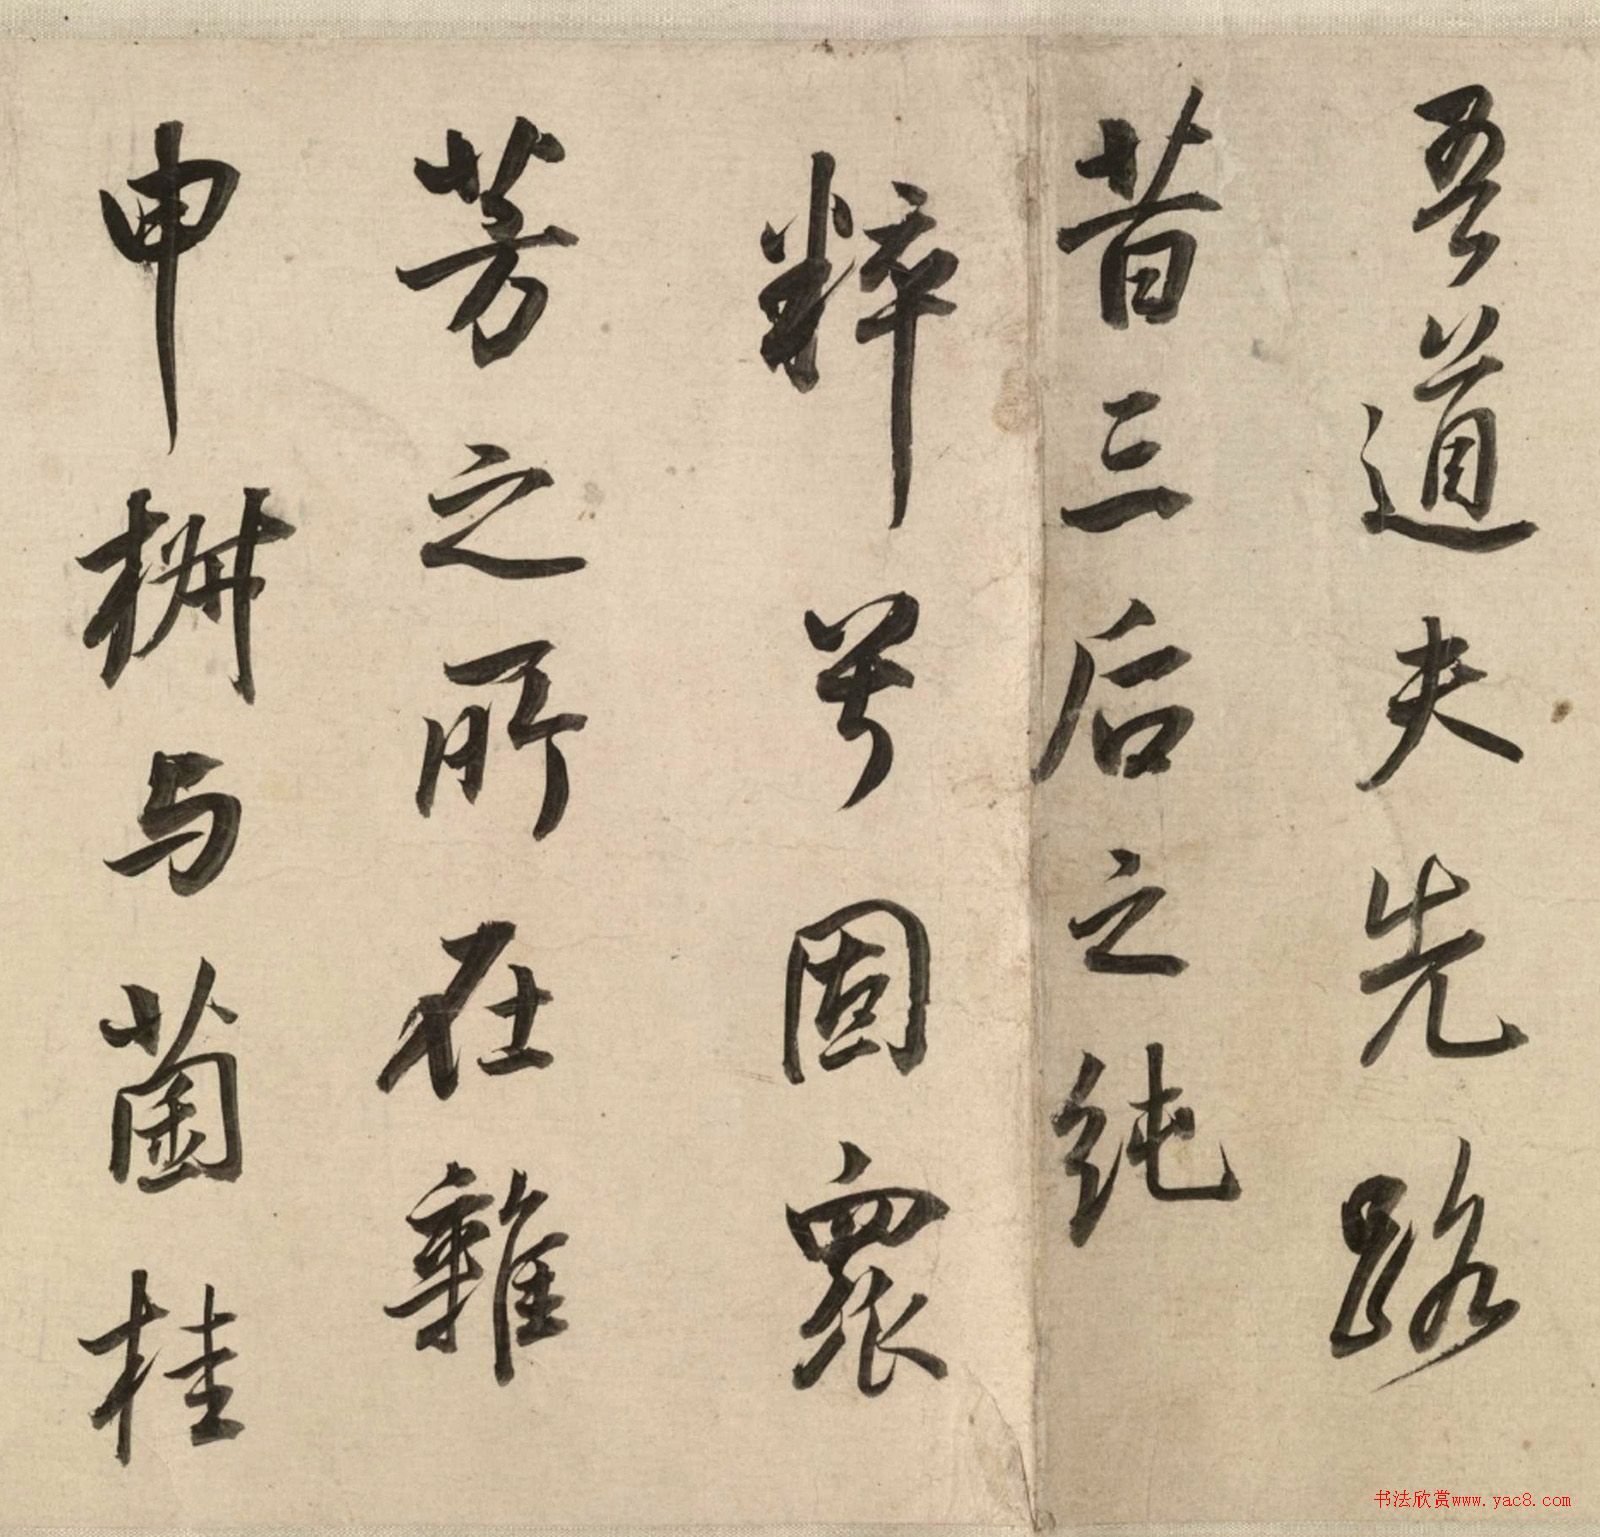 吾道夫先路
昔三后之純
粹兮固衆
芳之所在雜
申椒与菌桂
书法欣赏www.yac8.com